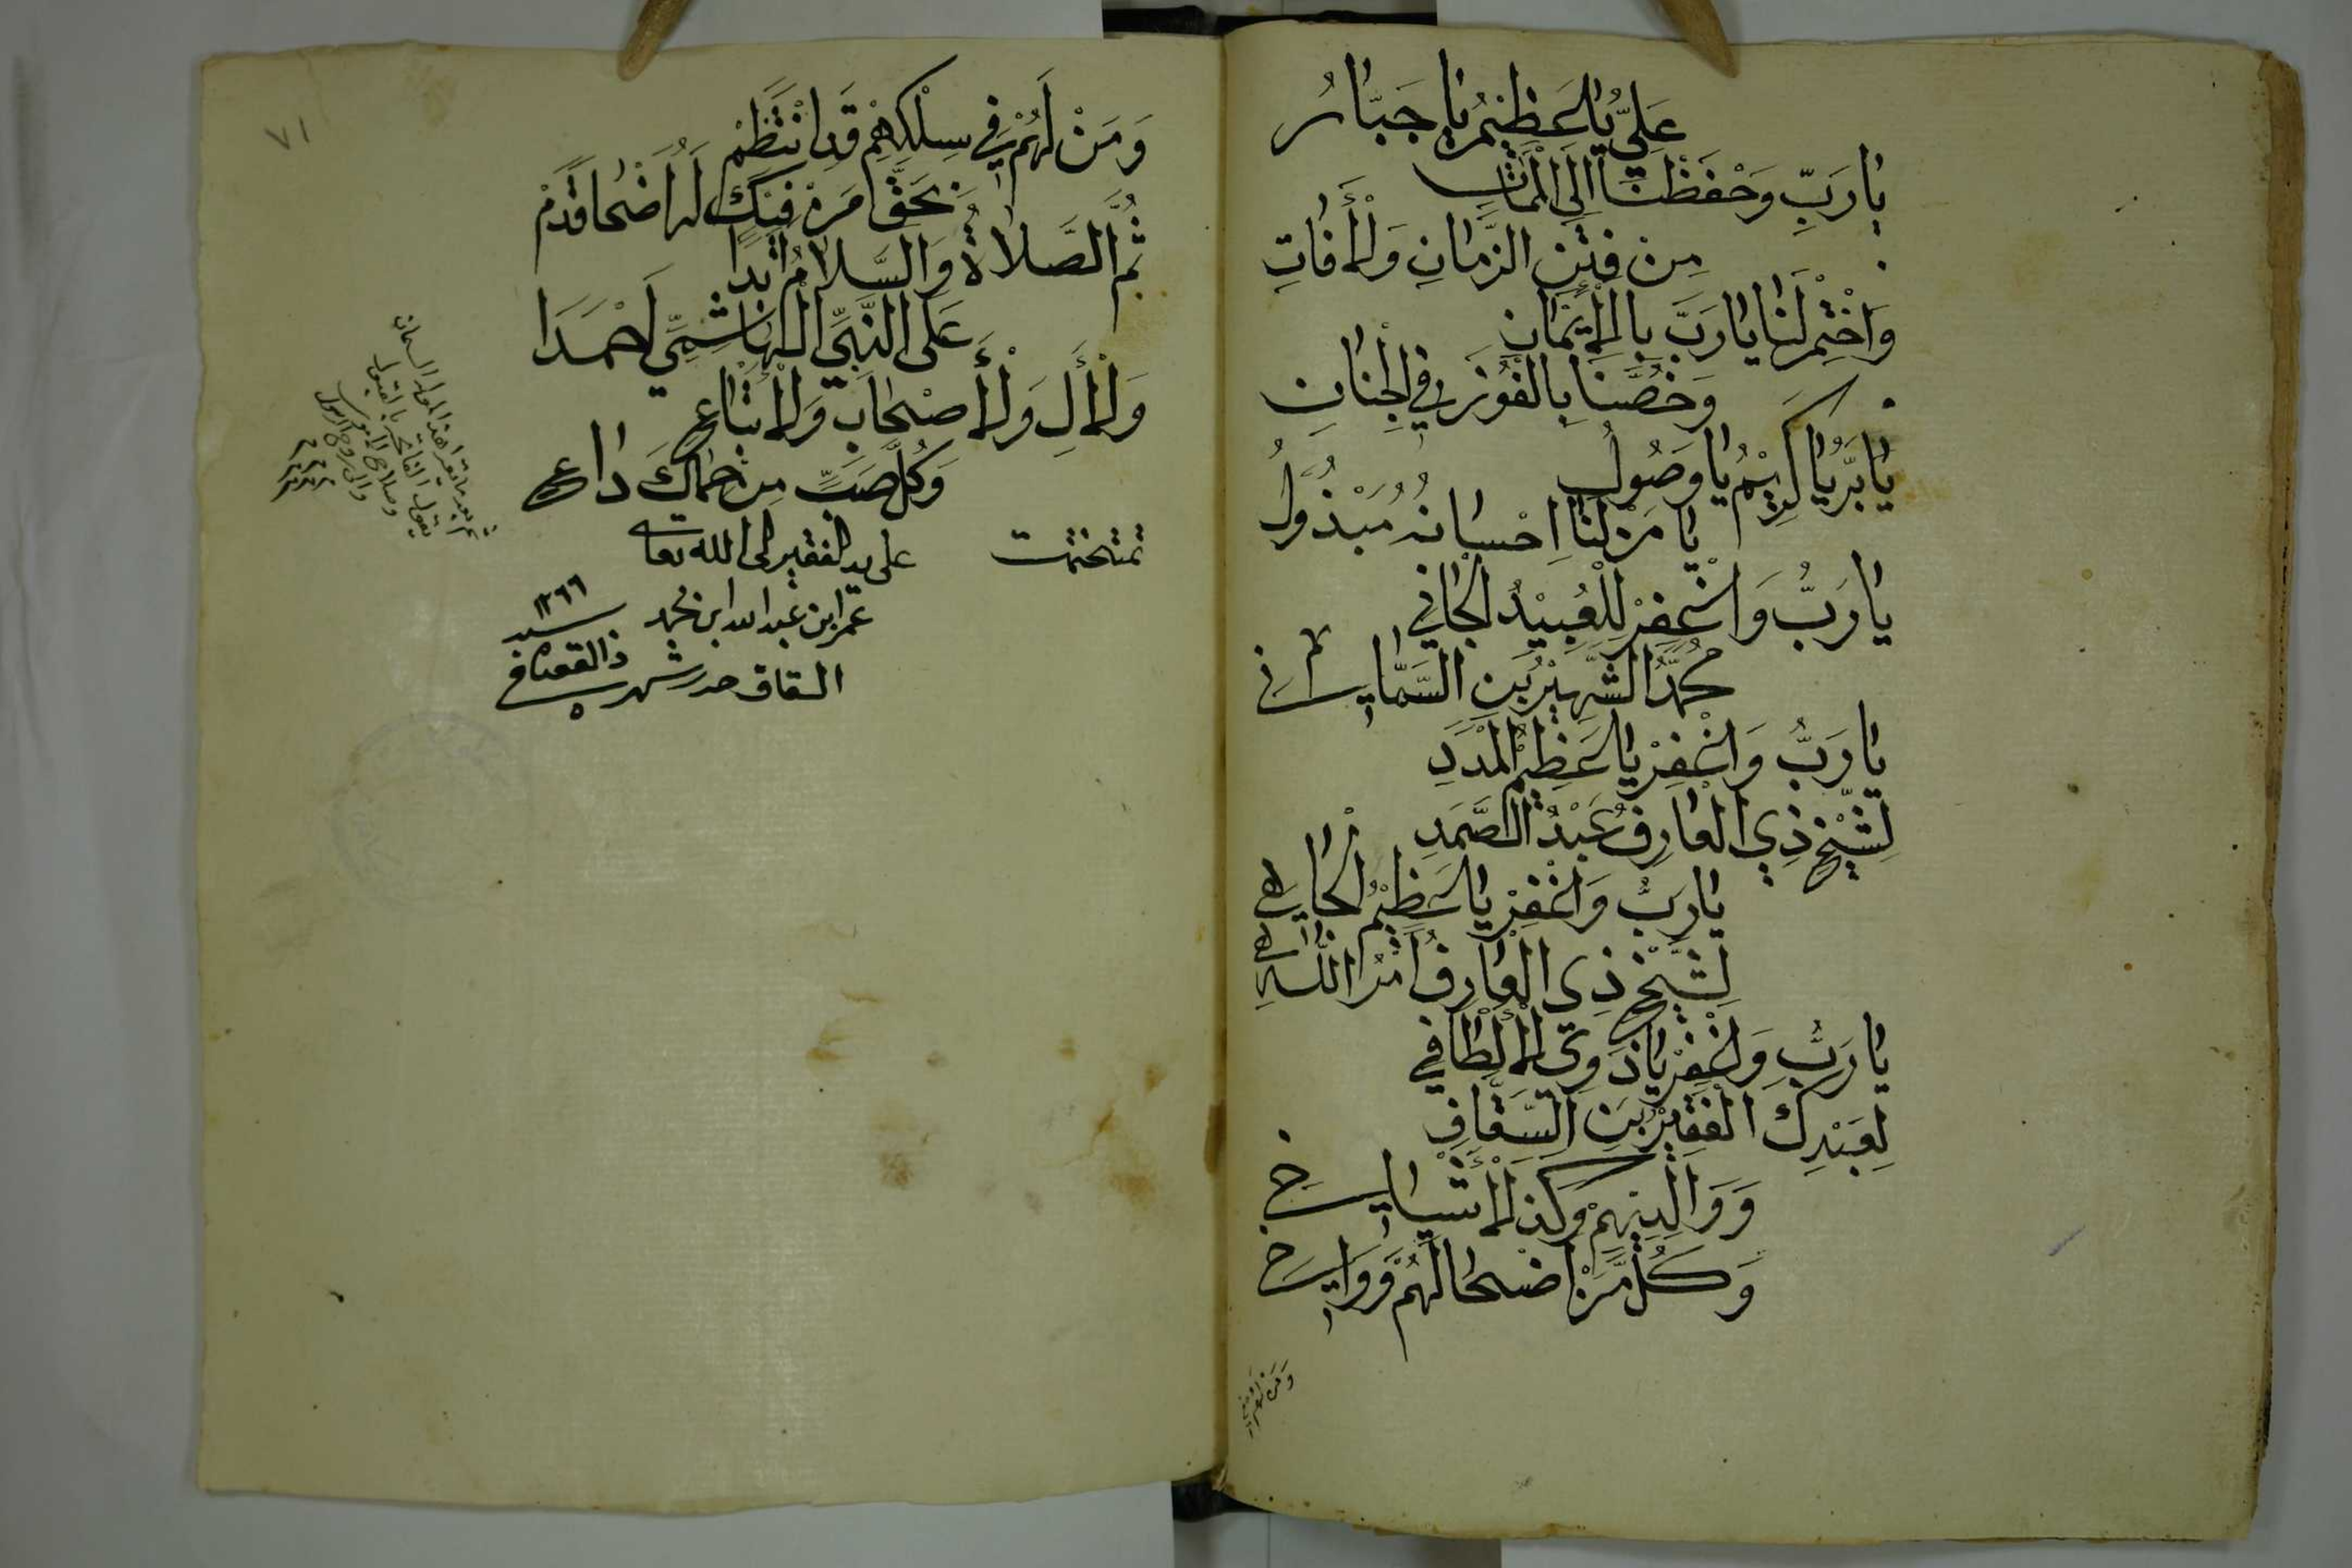 عَلِيُّ يَا عَظِيْمُ يَا جَبَّارُ
يَا رَبِّ وَحْفَظْنَا اِلَى الْمَمَاتِ
مِنْ فِتَنِ الزَّمَانِ وَلْأَفَاتِ
وَاخْتِمْ لَنَا يَا رَبَّ بِالْإِيْمَانِ
وَخُصَّنَا بِالْفَوْزِ فِي الْجِنَانِ
يَا بَرُّ يَا كَرِيْمُ يَا وَصُولُ
يَا مَنْ لَنَا اِحْسَانُهُ مَبْذُوْلُ
يَا رَبُّ وَاغْفِرْ لِلْعُبَيْدُ الْجَانِي
مُحَمَّدُ الشَّهِيْرُ بَنِ السَّمَّانِي
يَا رَبُّ وَاغْفِرْ يَا عَظِيْمُ الْمَدَدِ
لِشَيْخِ ذِي الْعَارِفُ عَبْدُ الصَّمَدِ
يَا رَبُّ وَاغْفِرْ يَا عَظِيْمُ الْجَاهِ
لِشَيْخِ ذِي الْعَارِفُ اَمْرُ اللّٰهِ
يَا رَبُّ وَاغْفِرْ يَا ذَوِي الْأَلْطَافِي
لِعَبْدِكَ الْفَقِيْرُ بَنِ السَّقَّافِ
وَوَالِدِيْهِمْ وَكَذَ الْأَشْيَاخِ
وَكُلُّ مَنْ اَضْحَا لَهُمْ وَوَاخِ
وَمَنْ لَهُمْ
٧١
وَمَنْ لَهُمْ فِي سِلْكِهِمْ قَدِ انْتَظَمْ
بِحَقِّ مَنْ فِيْكَ لَهُ اَضْحَا قَدَمْ
ثُمَّ الصَّلَاةُ وَالسَّلَامُ اَبَدَا
عَلَى النَّبِيِّ الْهَاشِمِيِّ اَحْمَدَا
وَلْأَلِ وَلْأَصْحَابِ وَلْأَتْبَاعِ
وَكُلُّ صَبٍّ مِنْ حِمَاكَ دَاعِ
تمت ختمت
على يد الفقير الى الله تعالى
عمر ابن عبد الله ابن محمد
السقاف
شهر ذالقعده في
سنه ١٢٦٦